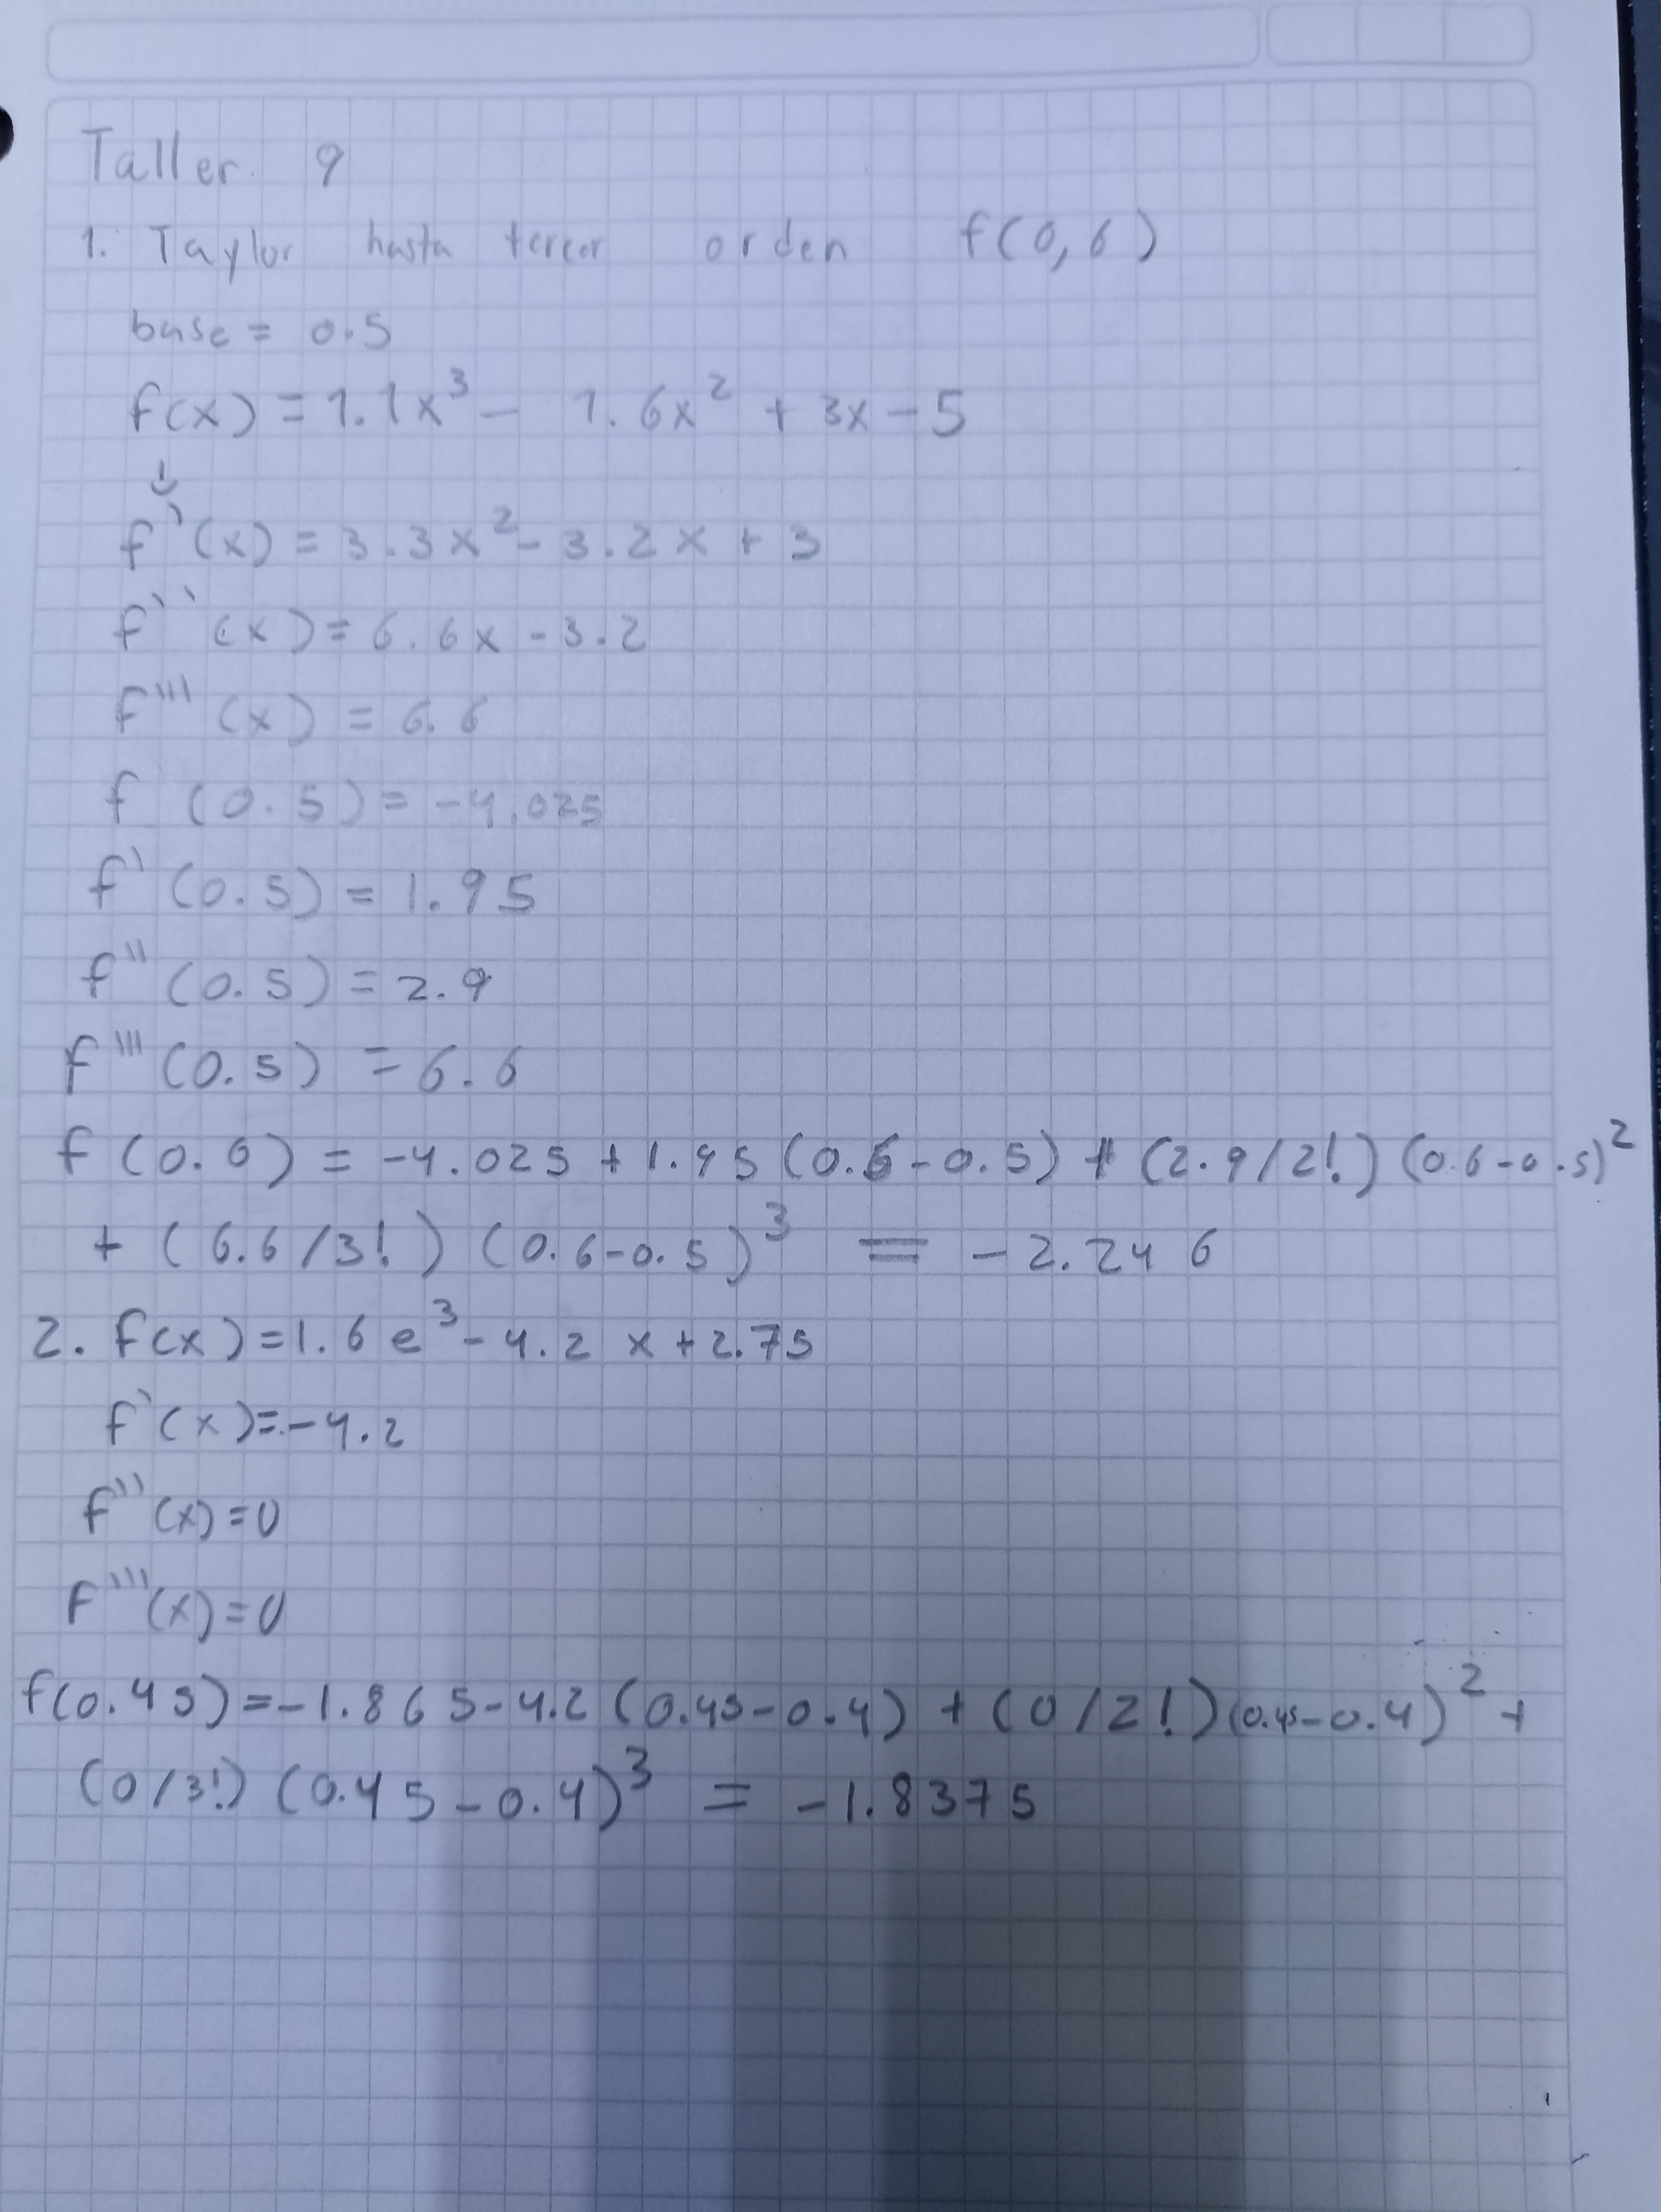 Taller 9
1. Taylor hasta tercer orden f(0,6)
base = 0.5
f(x) = 1.1x³ - 1.6x² + 3x - 5
↓
f'(x) = 3.3x² - 3.2x + 3
f''(x) = 6.6x - 3.2
f'''(x) = 6.6
f (0.5) = -4.025
f' (0.5) = 1.95
f'' (0.5) = 2.9
f''' (0.5) = 6.6
f (0.6) = -4.025 + 1.95 (0.6 - 0.5) + (2.9/2!) (0.6-0.5)²
+ (6.6/3!) (0.6-0.5)³ = -2.246
2. f(x) = 1.6 e³ - 4.2 x + 2.75
f'(x) = -4.2
f''(x) = 0
f'''(x) = 0
f(0.45) = -1.865 - 4.2 (0.45 - 0.4) + (0/2!) (0.45-0.4)² +
(0/3!) (0.45 - 0.4)³ = -1.8375